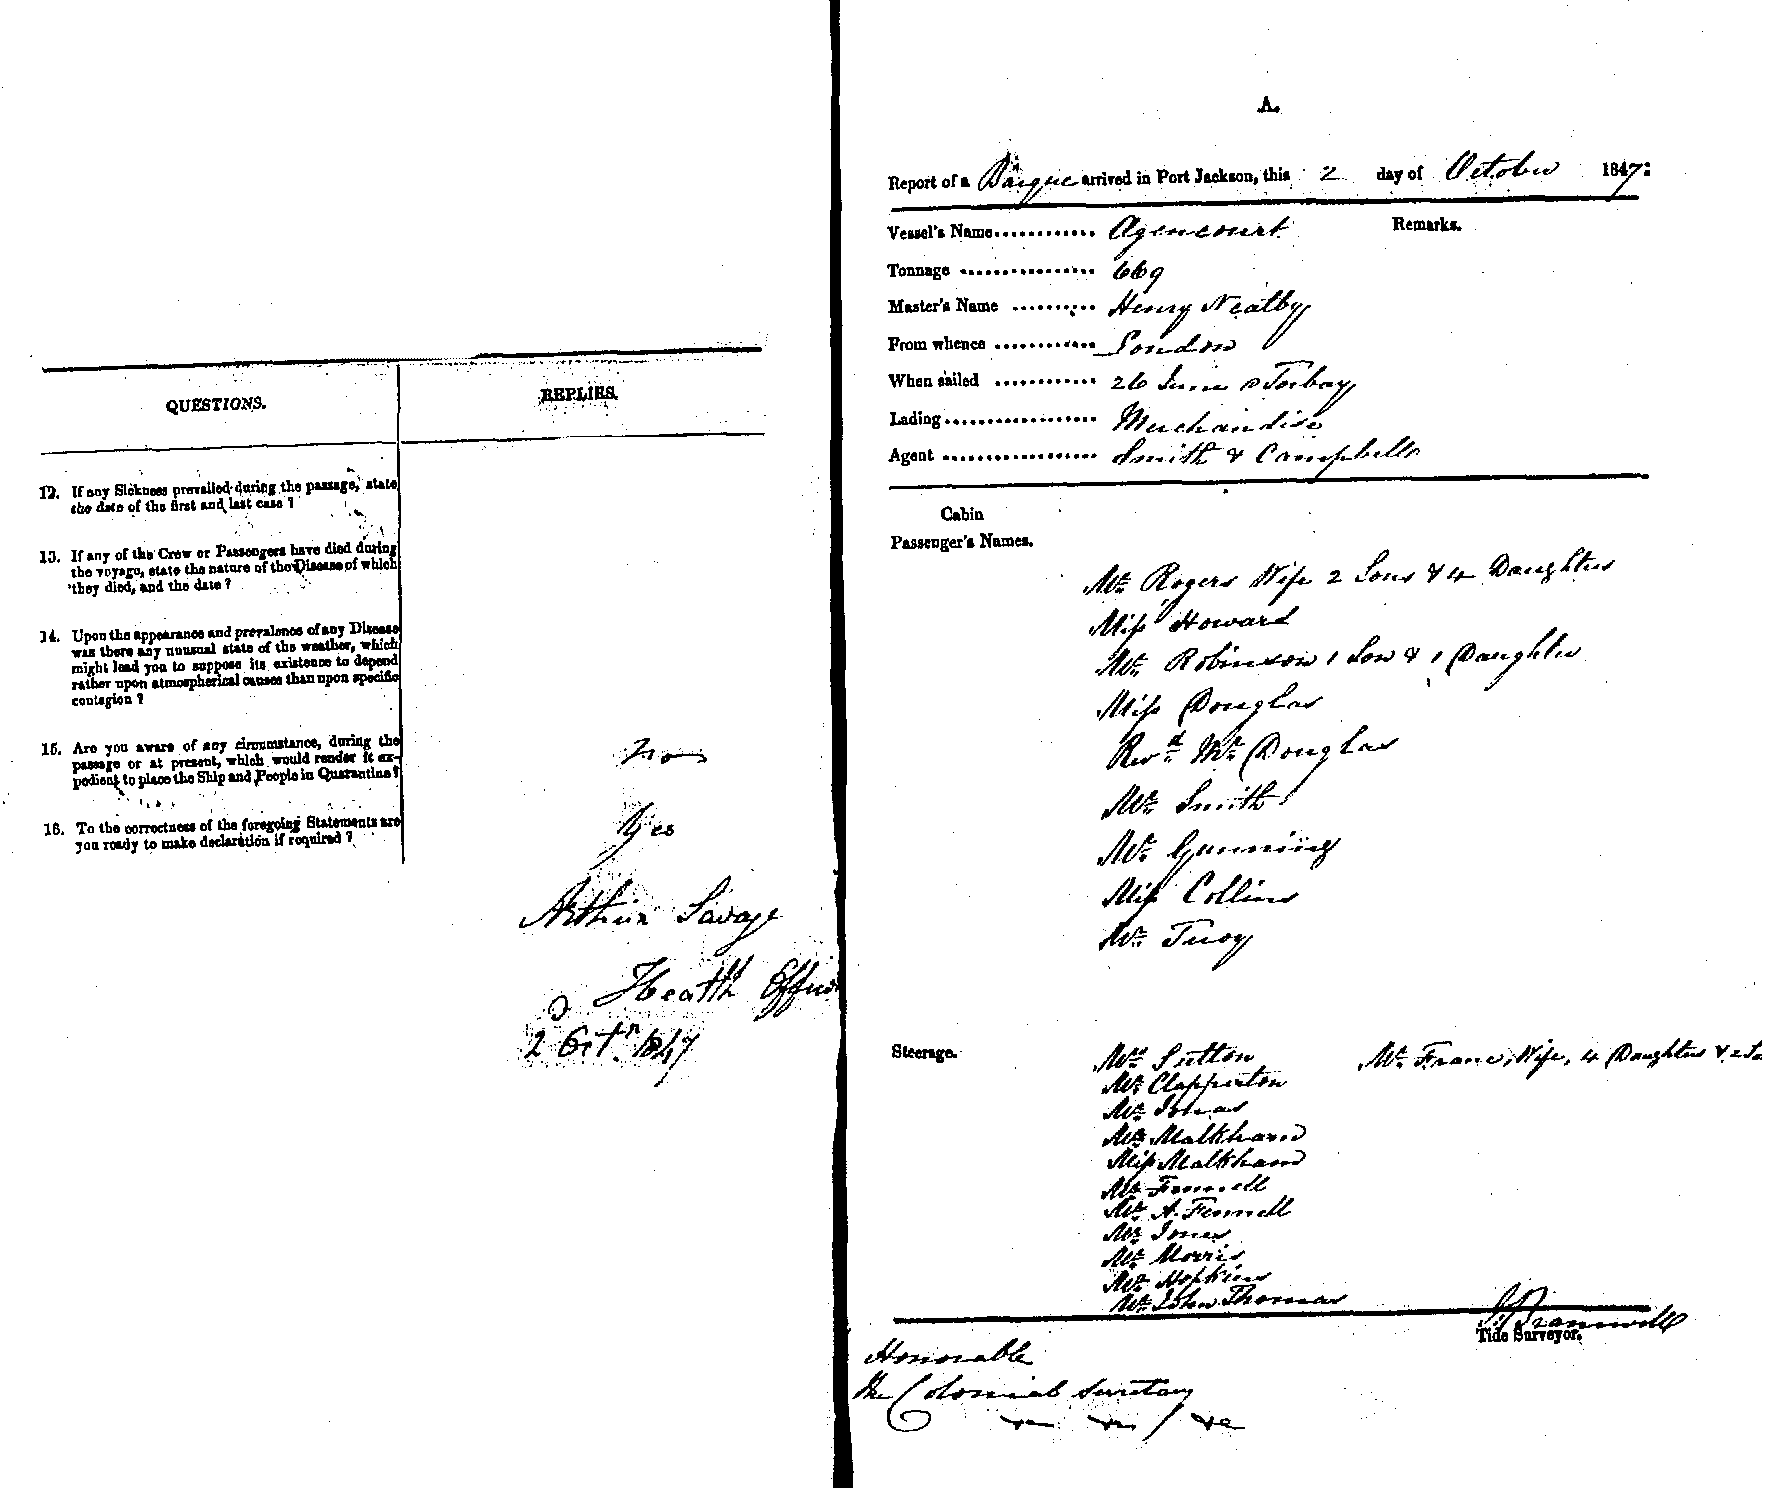 QUESTIONS.
REPLIES.
12. If any Sickness prevailed during the passage, state
the date of the first and last case ?
13. If any of the Crew or Passengers have died during
the voyage, state the nature of the Disease of which
they died, and the date ?
14. Upon the appearance and prevalence of any Disease
was there any unusual state of the weather, which
might lead you to suppose its existence to depend
rather upon atmospherical causes than upon specific
contagion ?
15. Are you aware of any circumstance, during the
passage or at present, which would render it ex-
pedient to place the Ship and People in Quarantine ?
no
16. To the correctness of the foregoing Statements are
you ready to make declaration if required ?
Yes
Arthur Savage
Health Officer
2 Octr. 1847
A.
Report of a Barque arrived in Port Jackson, this 2 day of October 1847:
Vessel's Name............ Agencourt
Remarks.
Tonnage ................ 669
Master's Name .......... Henry Neatby
From whence ............ London
When sailed ............ 26 June Torbay
Lading.................. Merchandise
Agent .................. Smith & Campbell
Cabin
Passenger's Names.
Mr. Rogers Wife 2 Sons & 4 Daughters
Miss Howard
Mr. Robinson 1 Son & 1 Daughter
Miss Douglas
Revd. Mr. Douglas
Mr. Smith
Mr. Gunning
Miss Collins
Mr. Tuoy
Steerage.
Mrs Sutton
Mr. France, Wife, 4 Daughters & 2
Mr. Clapperton
Mr. Jonas
Mr. Malkham
Miss Malkham
Mr. Fennell
Mr. A. Fennell
Mr. Jones
Mr. Morris
Mr. Hopkins
Mr. John Thomas
Bramwell
Tide Surveyor.
Honorable
the Colonial Secretary
&c &c / &c